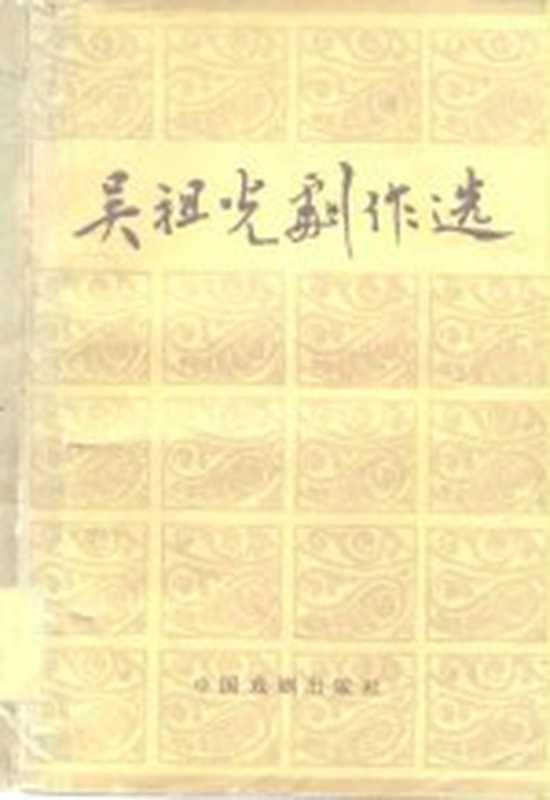 吴祖光劇作选
中国戏剧出版社